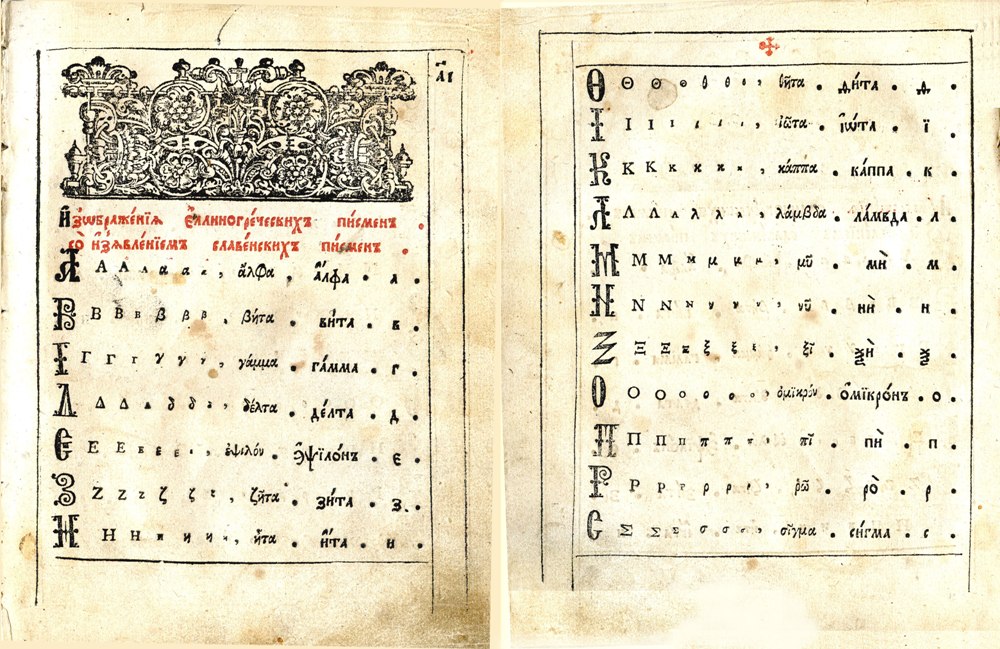 а҃і
И҆зѡбраже́нїѧ є҆́ллиногре́ческихъ пи́сменъ .
со и҆з̾ѧвле́нїемъ славе́нскихъ пи́сменъ .
А Α Α α α α , ἄλφα , а҆́лфа . а .
В Β Β в β β β , βῆτα . ви́та . в .
Г Γ Γ г γ γ γ , γάμμα . га́мма . г .
Δ Δ Δ δ δ δ , δέλτα . де́лта . д .
Є Ε Ε ε ε ε , ἐψιλόν . э҆ψїло́нъ . є .
З Ζ Ζ z ζ ζ ζ , ζῆτα . зи́та . з .
Н Η Η н η η η , ἦτα . и҆́та . и .
Ѳ Θ Θ θ θ θ θ , θῆτα . ѳи́та . ѳ .
І Ι Ι ι ι ι ι , ἰῶτα . і҆ѡ́та . ї .
К Κ Κ κ κ κ κ , κάππα . ка́ппа . к .
Λ Λ Λ λ λ λ λ , λάμβδα . ла́мвда . л .
М Μ Μ м μ μ μ , μῦ . мѝ . м .
Н Ν Ν н ν ν ν , νῦ . нѝ . н .
Ξ Ξ Ξ ξ ξ ξ ξ , ξῖ . ѯѝ . ѯ .
О Ο Ο ο ο ο ο , ὀμικρόν . о҆мїкро́нъ . о .
П Π Π п π π π , πῖ . пѝ . п .
Р Ρ Ρ ρ ρ ρ ρ , ῥῶ . рѡ̀ . р .
С Σ Σ Σ σ σ σ , σῖγμα . си́гма . с .